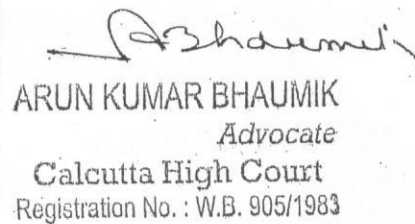 ABhaumik
ARUN KUMAR BHAUMIK
Advocate
Calcutta High Court
Registration No. : W.B. 905/1983